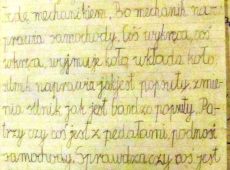 zdę mechanikiem. Bo mechanik nap
prawia samochody. Coś wykręca, coś
wkręca, wyjmuje koła wkłada koło,
silnik naprawia jak jest popsuty, zmie-
nia silnik jak jest bardzo popsuty. Pa-
trzy czy coś jest z pedałami, podnosi
samochody. Sprawdza czy coś jest